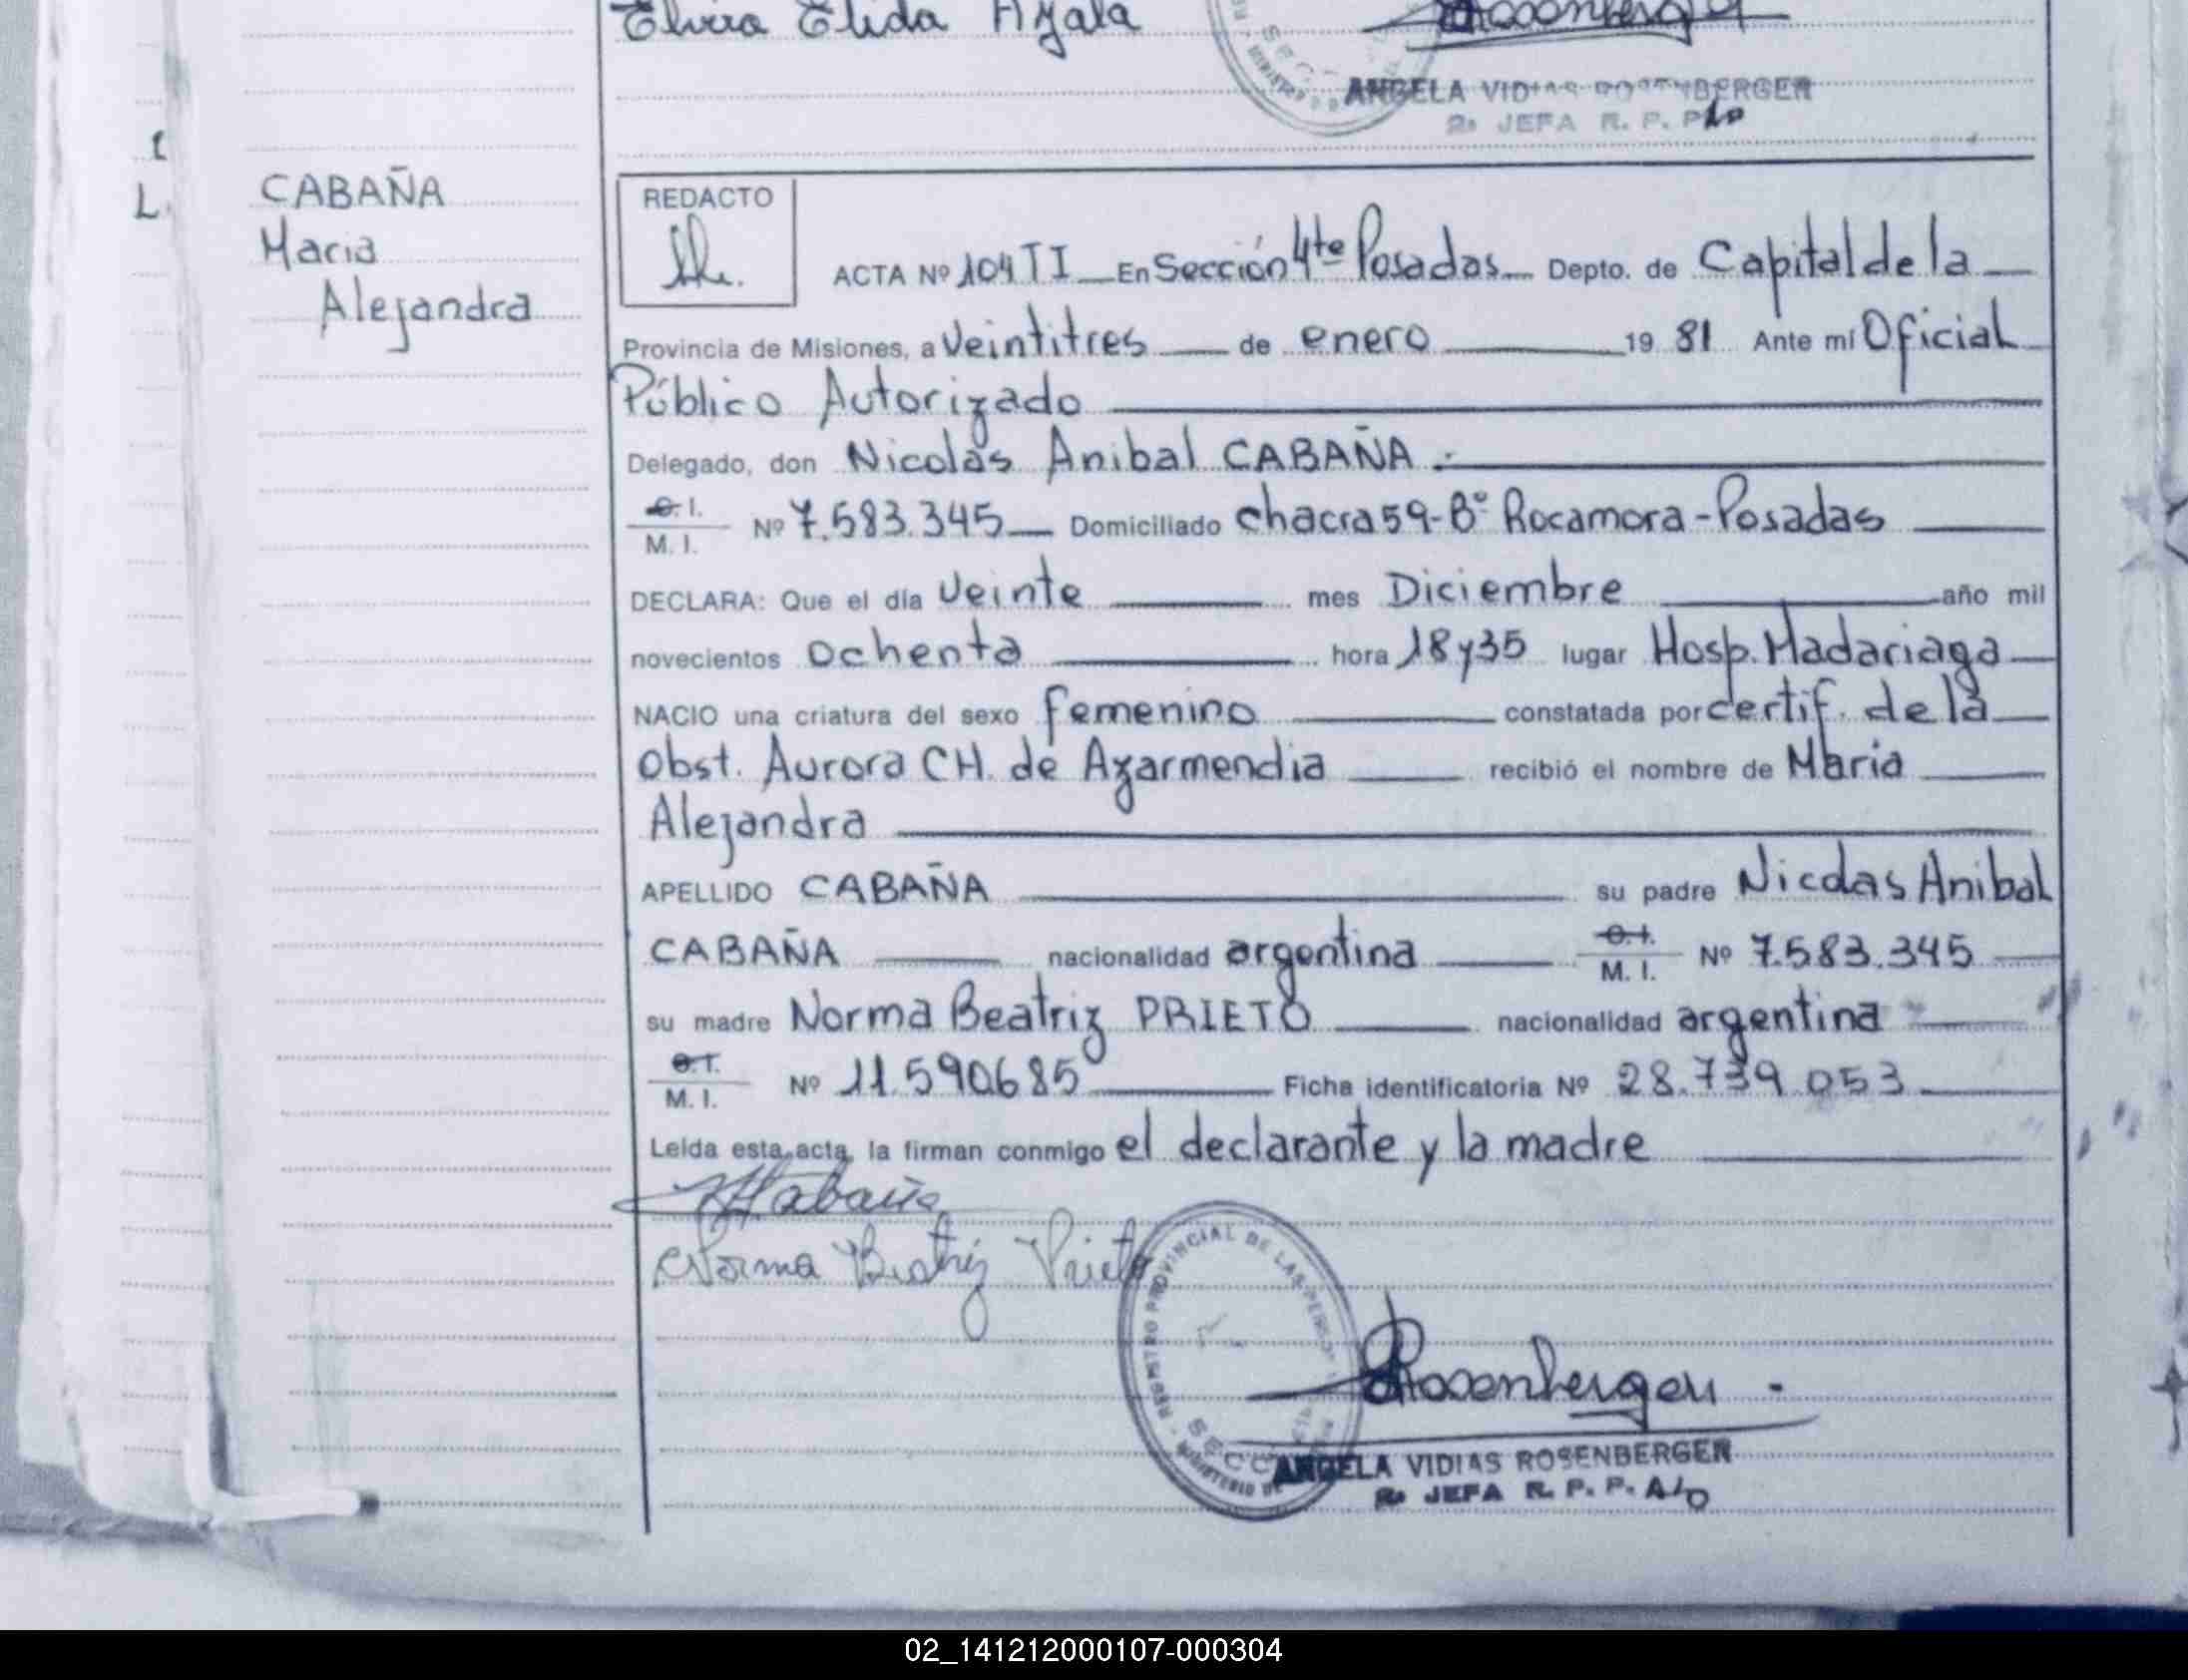 Elvira Elida Ayala
Rosenberger
ANGELA VIDIAS ROSENBERGER
2a JEFA R. P. P.
CABAÑA
Maria
Alejandra
REDACTO
ACTA Nº 104 TI En Sección 4ta Posadas Depto. de Capital de la
Provincia de Misiones, a Veintitres de enero 19 81 Ante mí Oficial
Público Autorizado
Delegado, don Nicolás Anibal CABAÑA.-
C. I.
M. I. Nº 7.583.345 Domiciliado chacra 59-Bº Rocamora-Posadas
DECLARA: Que el día Veinte mes Diciembre año mil
novecientos ochenta hora 18 y 35 lugar Hosp. Madariaga
NACIO una criatura del sexo femenino constatada por certif. de la
Obst. Aurora CH. de Azarmendia recibió el nombre de Maria
Alejandra
APELLIDO CABAÑA su padre Nicolas Anibal
CABAÑA nacionalidad argentina C. I. M. I. Nº 7.583.345
su madre Norma Beatriz PRIETO nacionalidad argentina
C. I.
M. I. Nº 11.590.685 Ficha identificatoria Nº 28.739.053
Leída esta acta, la firman conmigo el declarante y la madre
Cabaña
Norma Beatriz Prieto
REGISTRO PROVINCIAL DE LAS PERSO
SECC
MINISTERIO DE
Rosenberger
ANGELA VIDIAS ROSENBERGER
2a JEFA R. P. P. A/O
02_141212000107-000304